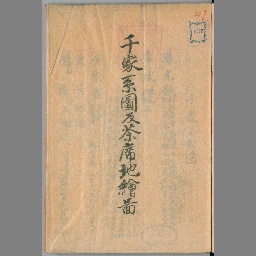 千家系圖及茶席地繪啚